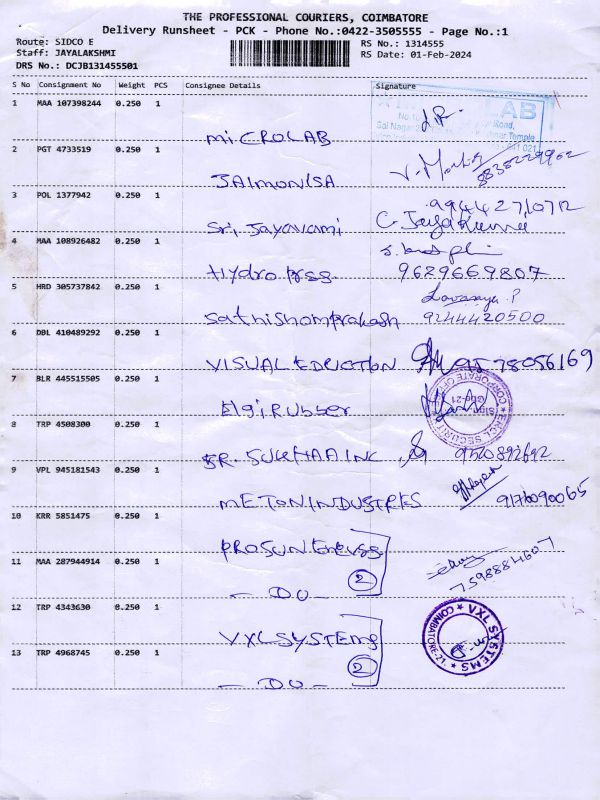 THE PROFESSIONAL COURIERS, COIMBATORE
Delivery Runsheet - PCK - Phone No.:0422-3505555 - Page No.:1
Route: SIDCO E
RS No.: 1314555
Staff: JAYALAKSHMI
RS Date: 01-Feb-2024
DRS No.: DCJB131455501
S No Consignment No Weight PCS Consignee Details Signature
1 MAA 107398244 0.250 1
MICROLAB
2 PGT 4733519 0.250 1
JAIMONISA
8838229962
3 POL 1377942 0.250 1
Sri Jayavami C. Jayakumar
9944271072
4 MAA 108926482 0.250 1
Hydro press 9629669807
5 HRD 305737842 0.250 1
Lavanya P
Sathishomprakash 9244420500
6 DBL 410489292 0.250 1
VISUAL EDUCTION 9578056169
7 BLR 445515505 0.250 1
Elgi Rubber
8 TRP 4508300 0.250 1
SR. SUKHAA INC 9520892692
9 VPL 945181543 0.250 1
METON INDUSTRES 9176090065
10 KRR 5851475 0.250 1
PROSUN Energg
11 MAA 287944914 0.250 1
- DO - 2
7598884607
12 TRP 4343630 0.250 1
VXL SYSTEMS
13 TRP 4968745 0.250 1
- DO - 2
VXL SYSTEMS
COIMBATORE-21.